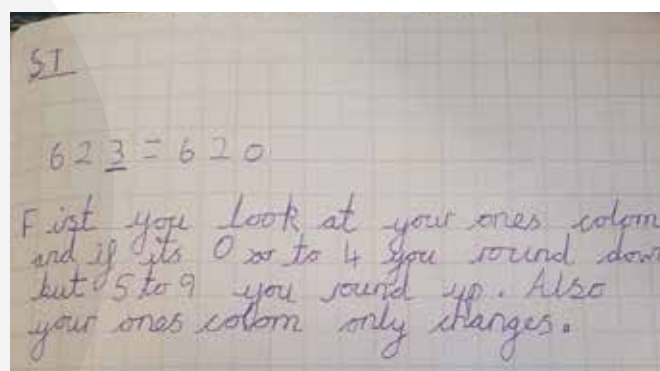 SI
623 = 620
First you look at your ones colom
and if its 0 to 4 you round down
but 5 to 9 you round up. Also
your ones colom only changes.